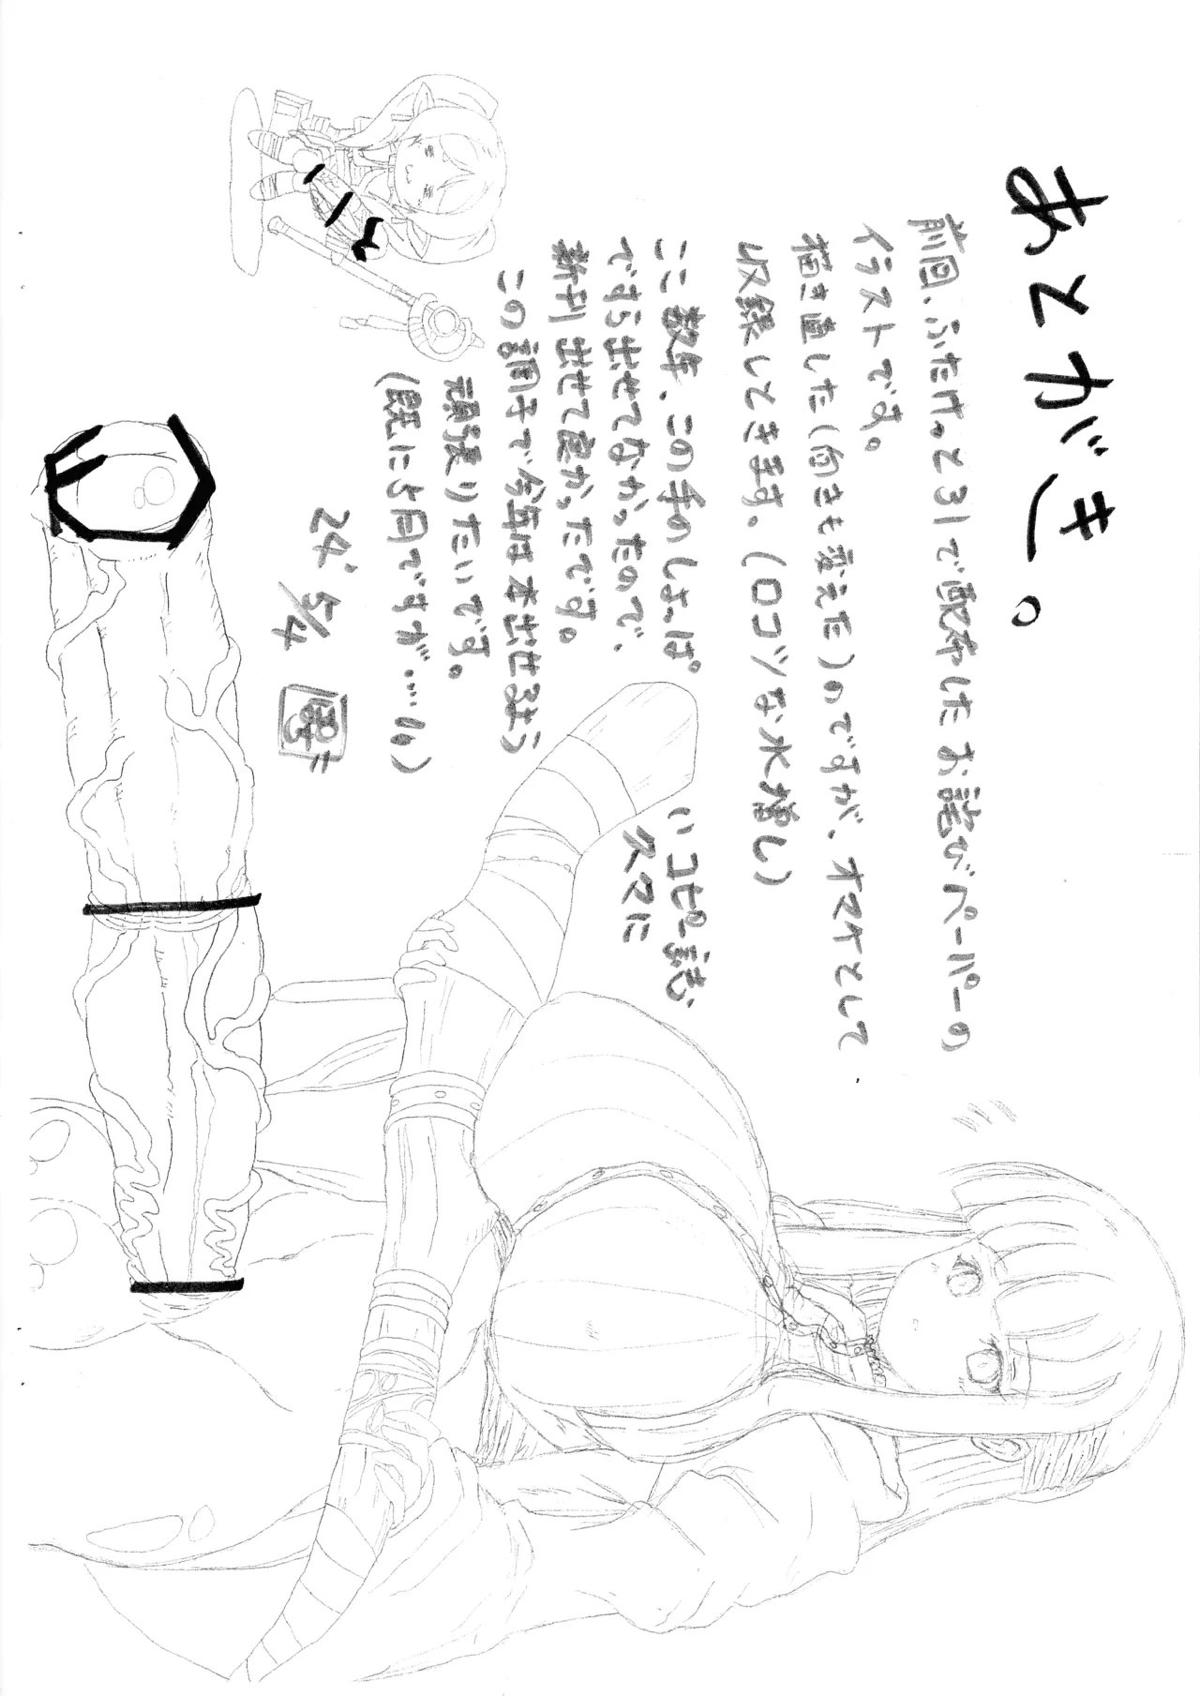 あとがき。
前回、ふたけっと31で配布したお詫びペーパーの
イラストです。
描き直した(向きも変えた)のですが、オマケとして
収録しときます。(ロコツな水増し)
ここ数年、この手のしょっぱい
コピー誌
ですら出せてなかったので、
久々に
新刊出せて良かったです。
この調子で今年は本出せるよう
頑張りたいです。
(既に5月ですが…‥)
24' 5/4